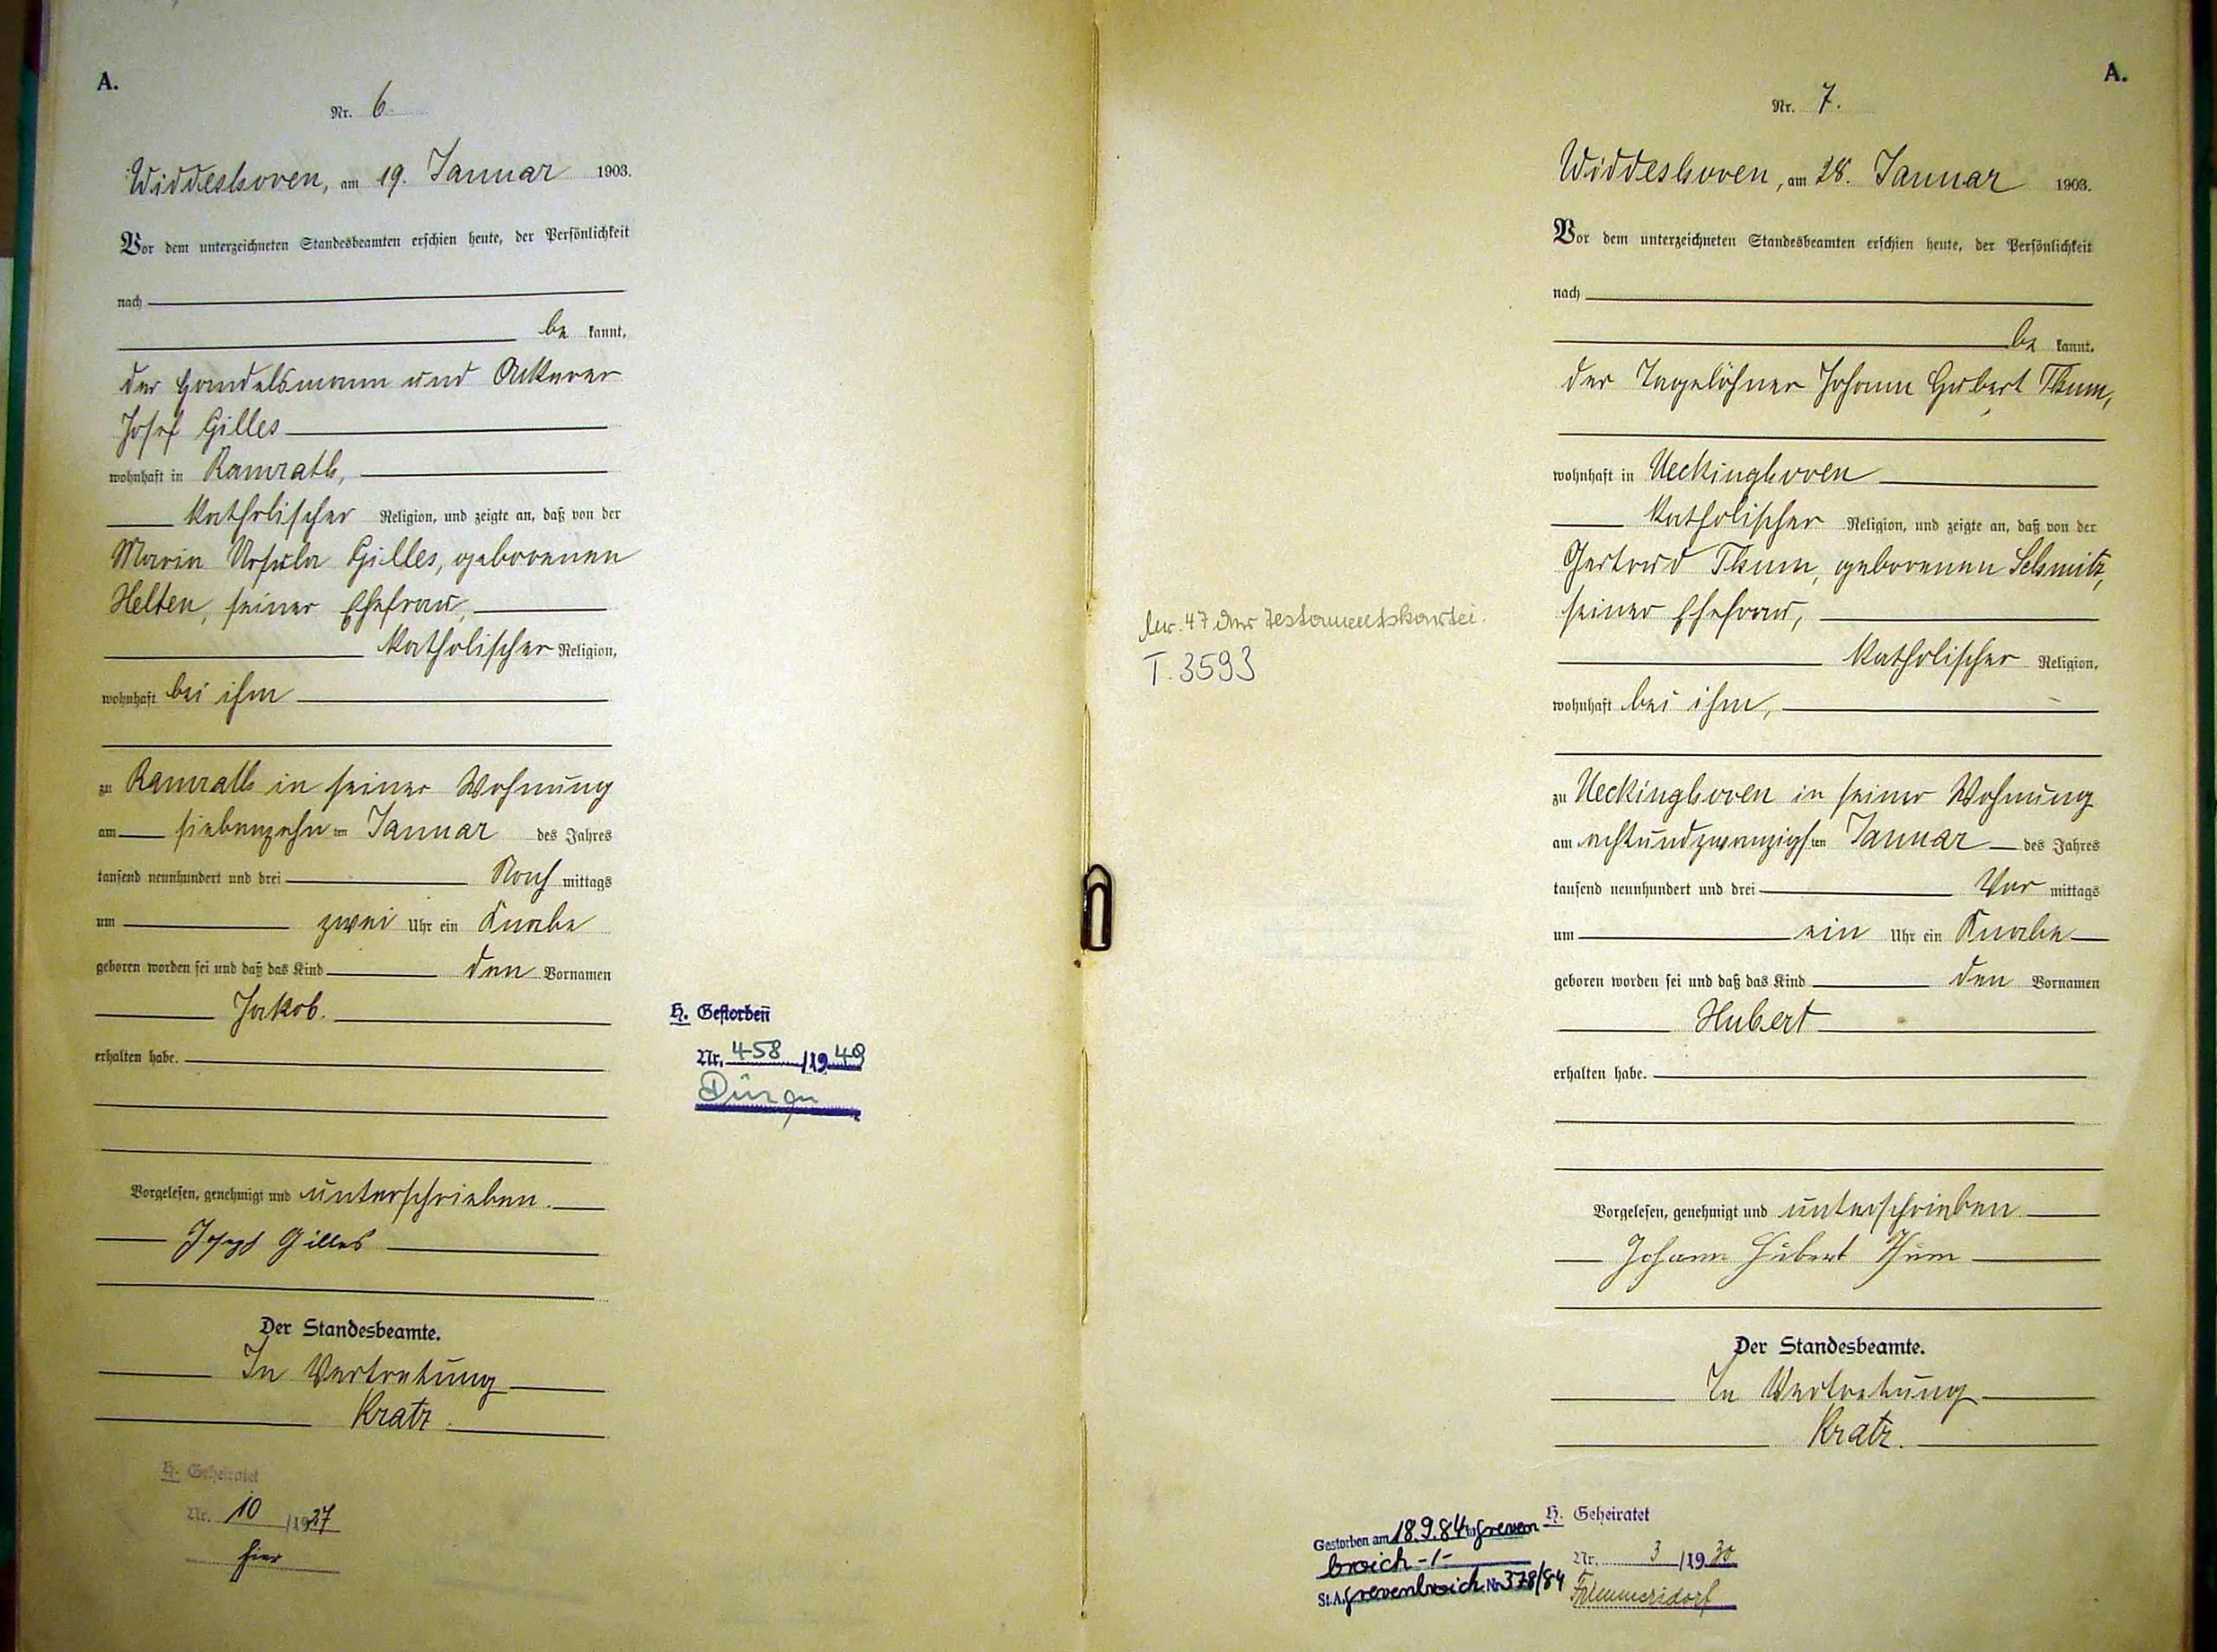 A.
Nr. 6.
Widdeshoven, am 19. Januar 1903.
Vor dem unterzeichneten Standesbeamten erschien heute, der Persönlichkeit
nach
be kannt,
der Handelsmann und Ackerer
Josef Gilles
wohnhaft in Ramrath,
katholischer Religion, und zeigte an, daß von der
Maria Ursula Gilles, geborenen
Helten, seiner Ehefrau,
katholischer Religion,
wohnhaft bei ihm
zu Ramrath in seiner Wohnung
am siebenzehn ten Januar des Jahres
tausend neunhundert und drei Nach mittags
um zwei Uhr ein Knabe
geboren worden sei und daß das Kind den Vornamen
Jakob.
erhalten habe.
Vorgelesen, genehmigt und unterschrieben.
Josef Gilles
Der Standesbeamte.
In Vertretung
Kratz.
H. Geheiratet
Nr. 10 /1927
hier
H. Gestorben
Nr. 458 /1949
Düren
A.
Nr. 7.
Widdeshoven, am 28. Januar 1903.
Vor dem unterzeichneten Standesbeamten erschien heute, der Persönlichkeit
nach
be kannt,
der Tagelöhner Johann Hubert Thum,
wohnhaft in Ueckinghoven
katholischer Religion, und zeigte an, daß von der
Gertrud Thum, geborenen Schmitz,
seiner Ehefrau,
katholischer Religion,
wohnhaft bei ihm,
zu Ueckinghoven in seiner Wohnung
am achtundzwanzigs ten Januar des Jahres
tausend neunhundert und drei Vor mittags
um ein Uhr ein Knabe
geboren worden sei und daß das Kind den Vornamen
Hubert
erhalten habe.
Vorgelesen, genehmigt und unterschrieben
Johann Hubert Thum
Der Standesbeamte.
In Vertretung
Kratz.
Nr. 47 der Testamentskartei.
T. 3593
Gestorben am 18.9.84 in Greven
broich -1-
St.A. Grevenbroich Nr. 378/84
H. Geheiratet
Nr. 3 /1930
Frimmersdorf